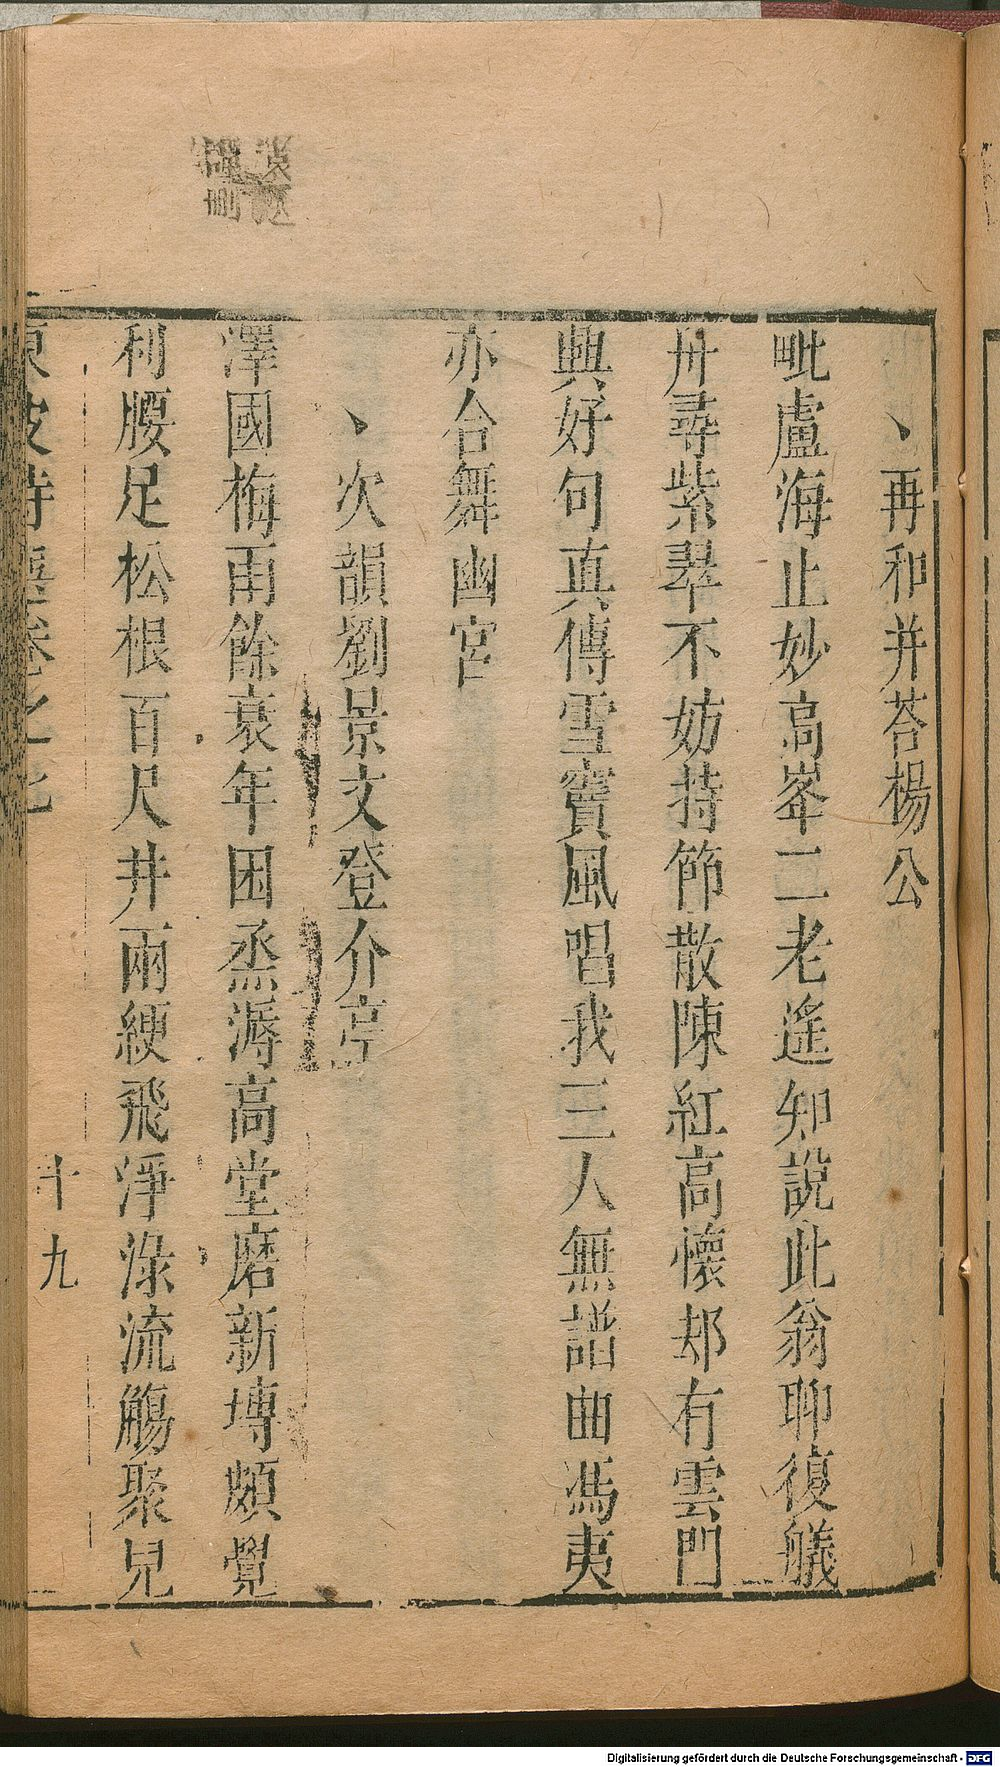 再和并荅楊公
毗盧海止妙高峯二老遙知說此翁聊復艤
舟尋紫翠不妨持節散陳紅高懷却有雲門
興好句真傳雪竇風唱我三人無譜曲馮夷
亦合舞幽宮
次韻劉景文登介亭
澤國梅雨餘衰年困烝溽高堂磨新塼頗覺
利腰足松根百尺井兩綆飛淨淥流觴聚兒
東坡詩選卷之七
十九
Digitalisierung gefördert durch die Deutsche Forschungsgemeinschaft - DFG